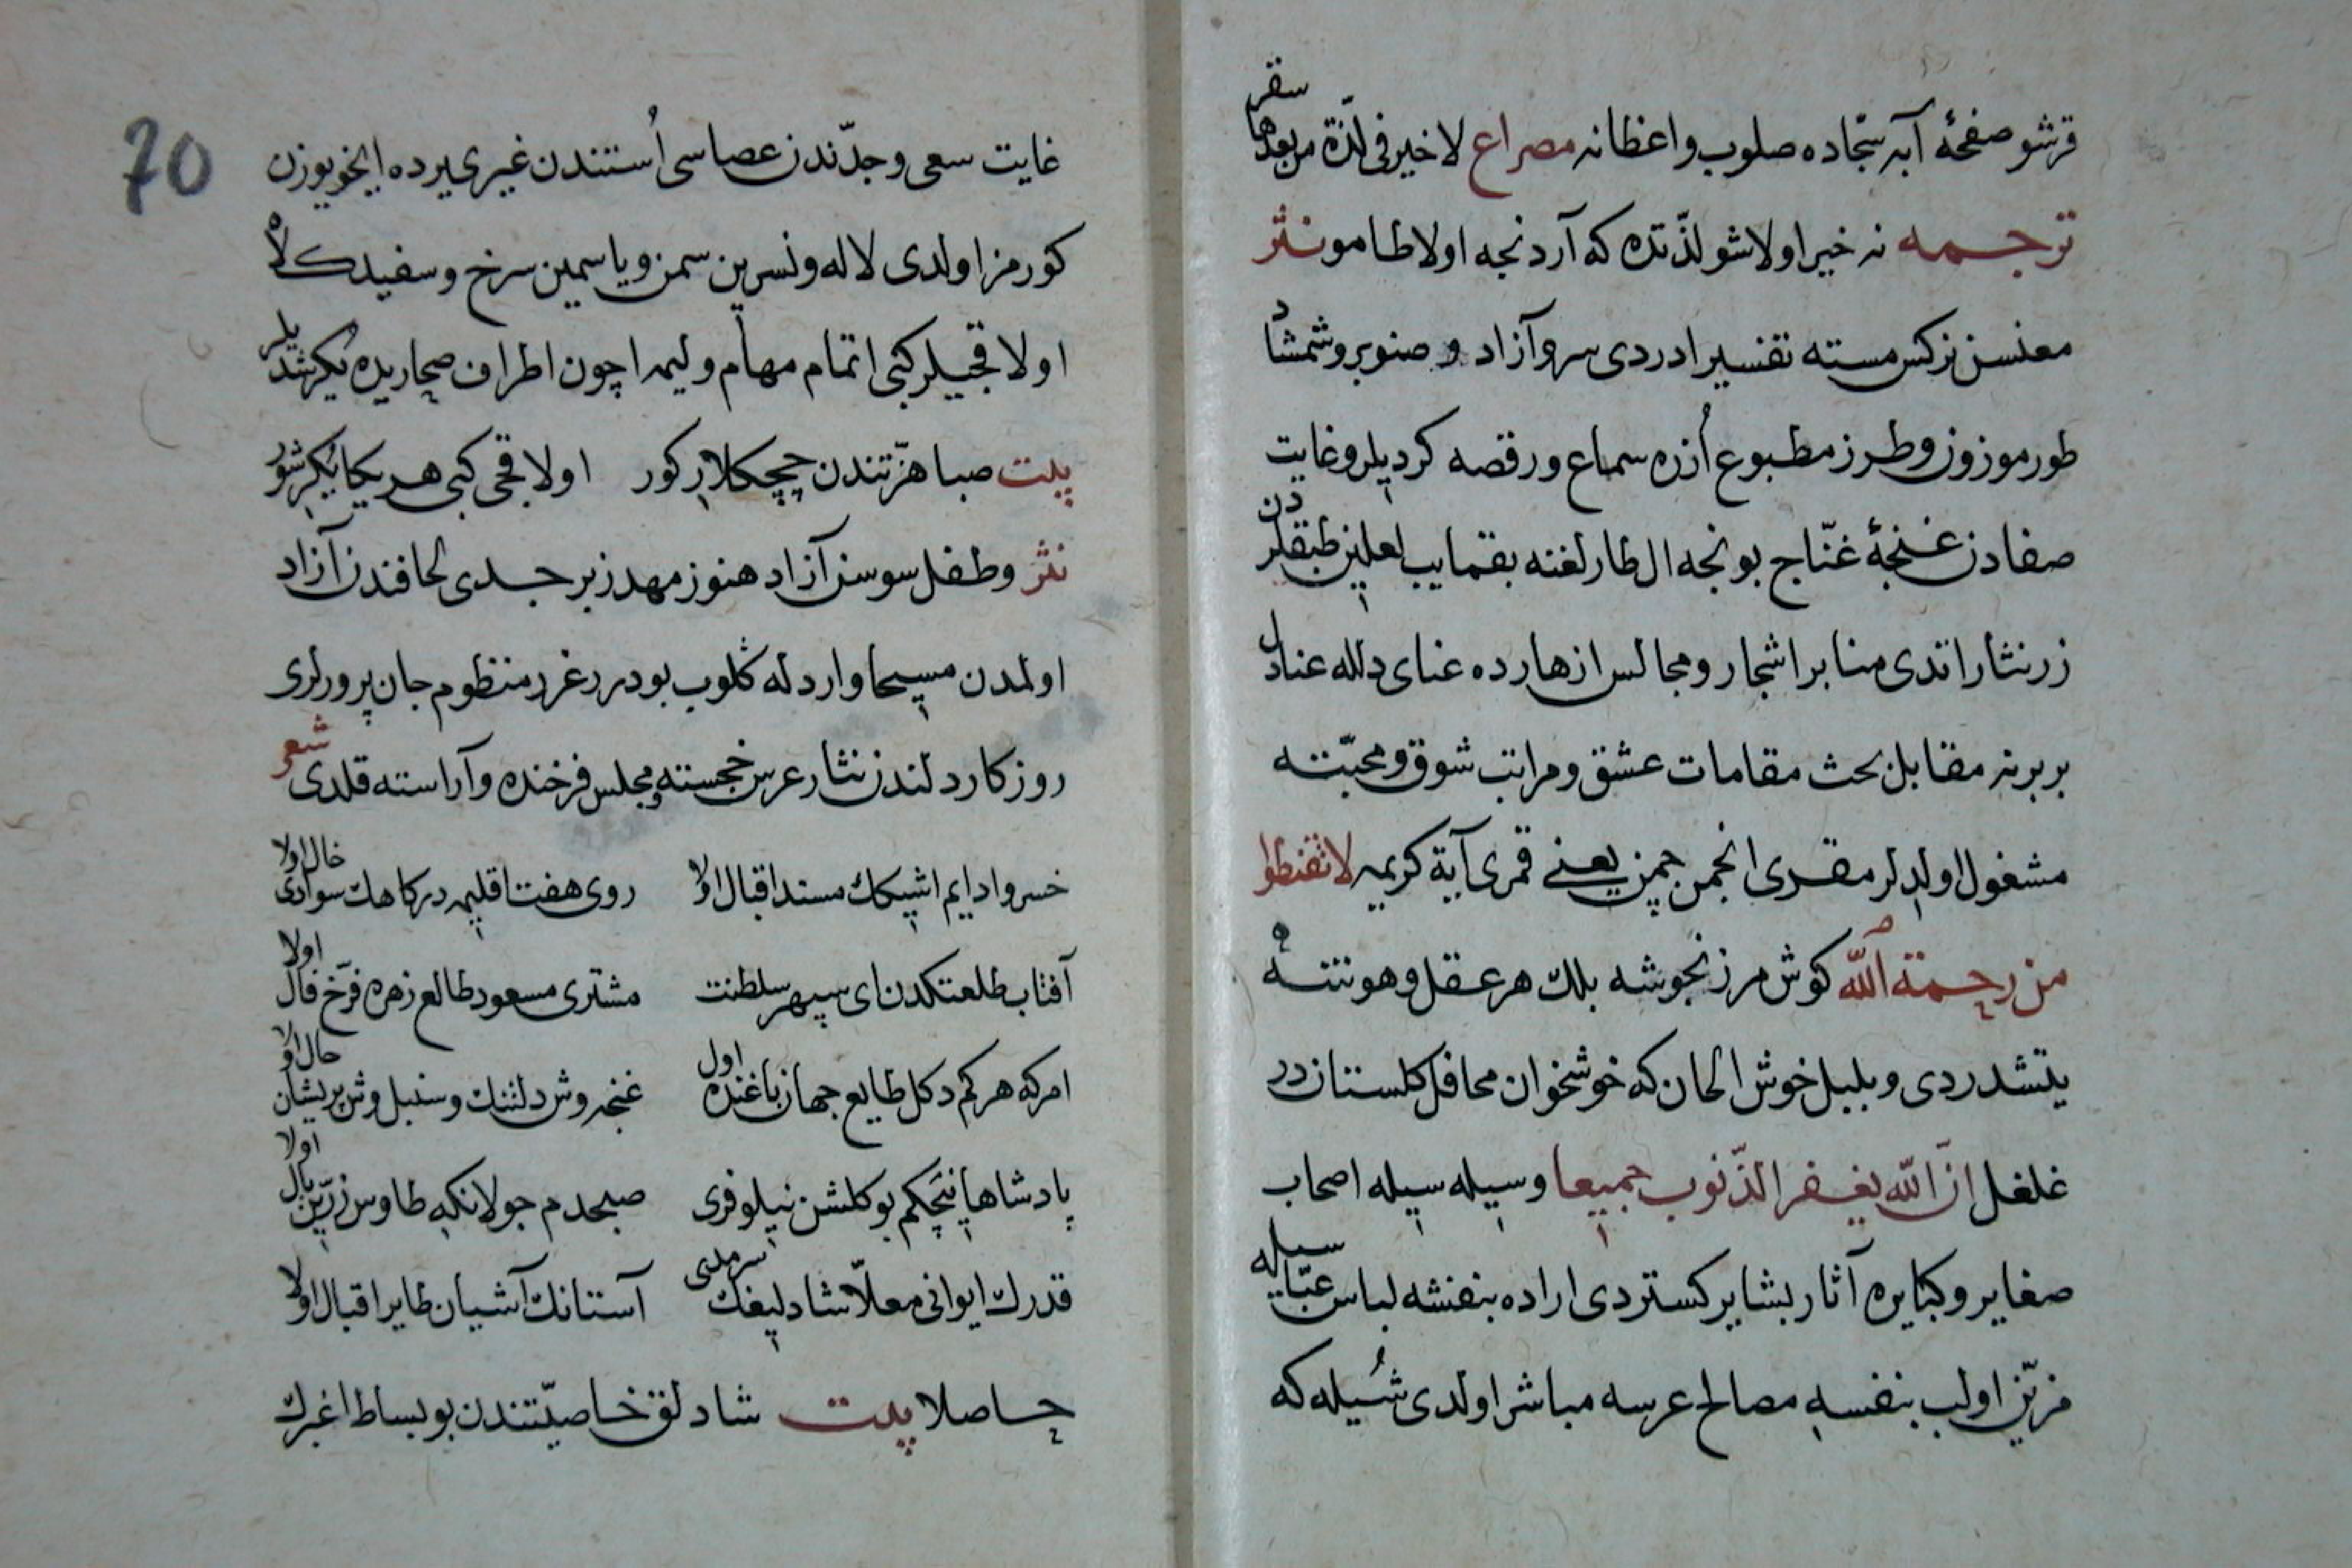 قرشو صفحهٔ آبه سجّاده صلوب واعظانه مصراع لا خیر فی لذّة من بعدها سقر
ترجمه نه خیر اولا شو لذّتده که آردنجه اولا طامو نثر
معنسن نرکس مسته تفسیر ادردی سرو آزاد و صنوبر و شمشاد
طور موزون و طرز مطبوع اُزره سماع و رقصه کردیلر و غایت
صفادن غنجهٔ غنّاج بونجه ال طارلغنه بقمایب لعلین طبقلردن
زر نثار اتدی منابر اشجار و مجالس ازهارده عنای دلله عنادل
بر برنه مقابل بحث مقامات عشق و مراتب شوق و محبّته
مشغول اولدلر مقری انجمن چمن یعنے قمری آیة کریمه لا تقنطوا
من رحمة الله کوش مرزنجوشه بلك هر عقل و هوشه
یتشدردی و بلبل خوش الحان که خوشخوان محافل کلستاندر
غلغل انّ الله یغفر الذّنوب جمیعا وسیله سیله اصحاب
صغایر و کبایره آثار بشایر کستردی اراده بنفشه لباس عبّا سیله
مزیّن اولب بنفسه مصالح عرسه مباشر اولدی شُیله که
70
غایت سعی و جدّندن عصاسی اُستندن غیری یرده ایخو یوزن
کورمز اولدی لاله و نسرین سمن و یاسمین سرخ و سفید کلاه
اولاقجیلر کبی اتمام مهام ولیمه اچون اطراف صحاریده یُکرشدیلر
بیت صبا هزّتندن چچکلار کور اولاقجی کبی هر یکا یُکرشور
نثر و طفل سوسن آزاد هنوز مهد زبرجدی لحافندن آزاد
اولمدن مسیحاوار دله کلوب بو درر غرر منظوم جان پرورلری
روزکار دلندن نثار عرس خجسته و مجلس فرخنده و آراسته قلدی شعر
خسروا دایم اشیکك مسند اقبال اولا روی هفت اقلیمه درکاهك سوادی خال اولا
آفتاب طلعتکدن ای سپهر سلطنت مشتری مسعود طالع زهره فرّخ فال اولا
امرکه هر کم دکل طایع جهان باغنده اول غنچه وش دلتنك و سنبل وش پریشان حال اولا
پادشاها نیچکم بو کلشن نیلوفری صبحدم جولانکه طاوس زرّین بال اولا
قدرك ایوانی معلّا شادلیغك سرمدی آستانك آشیان طایر اقبال اولا
حاصلا بیت شادلق خاصیّتندن بو بساط اغبرك